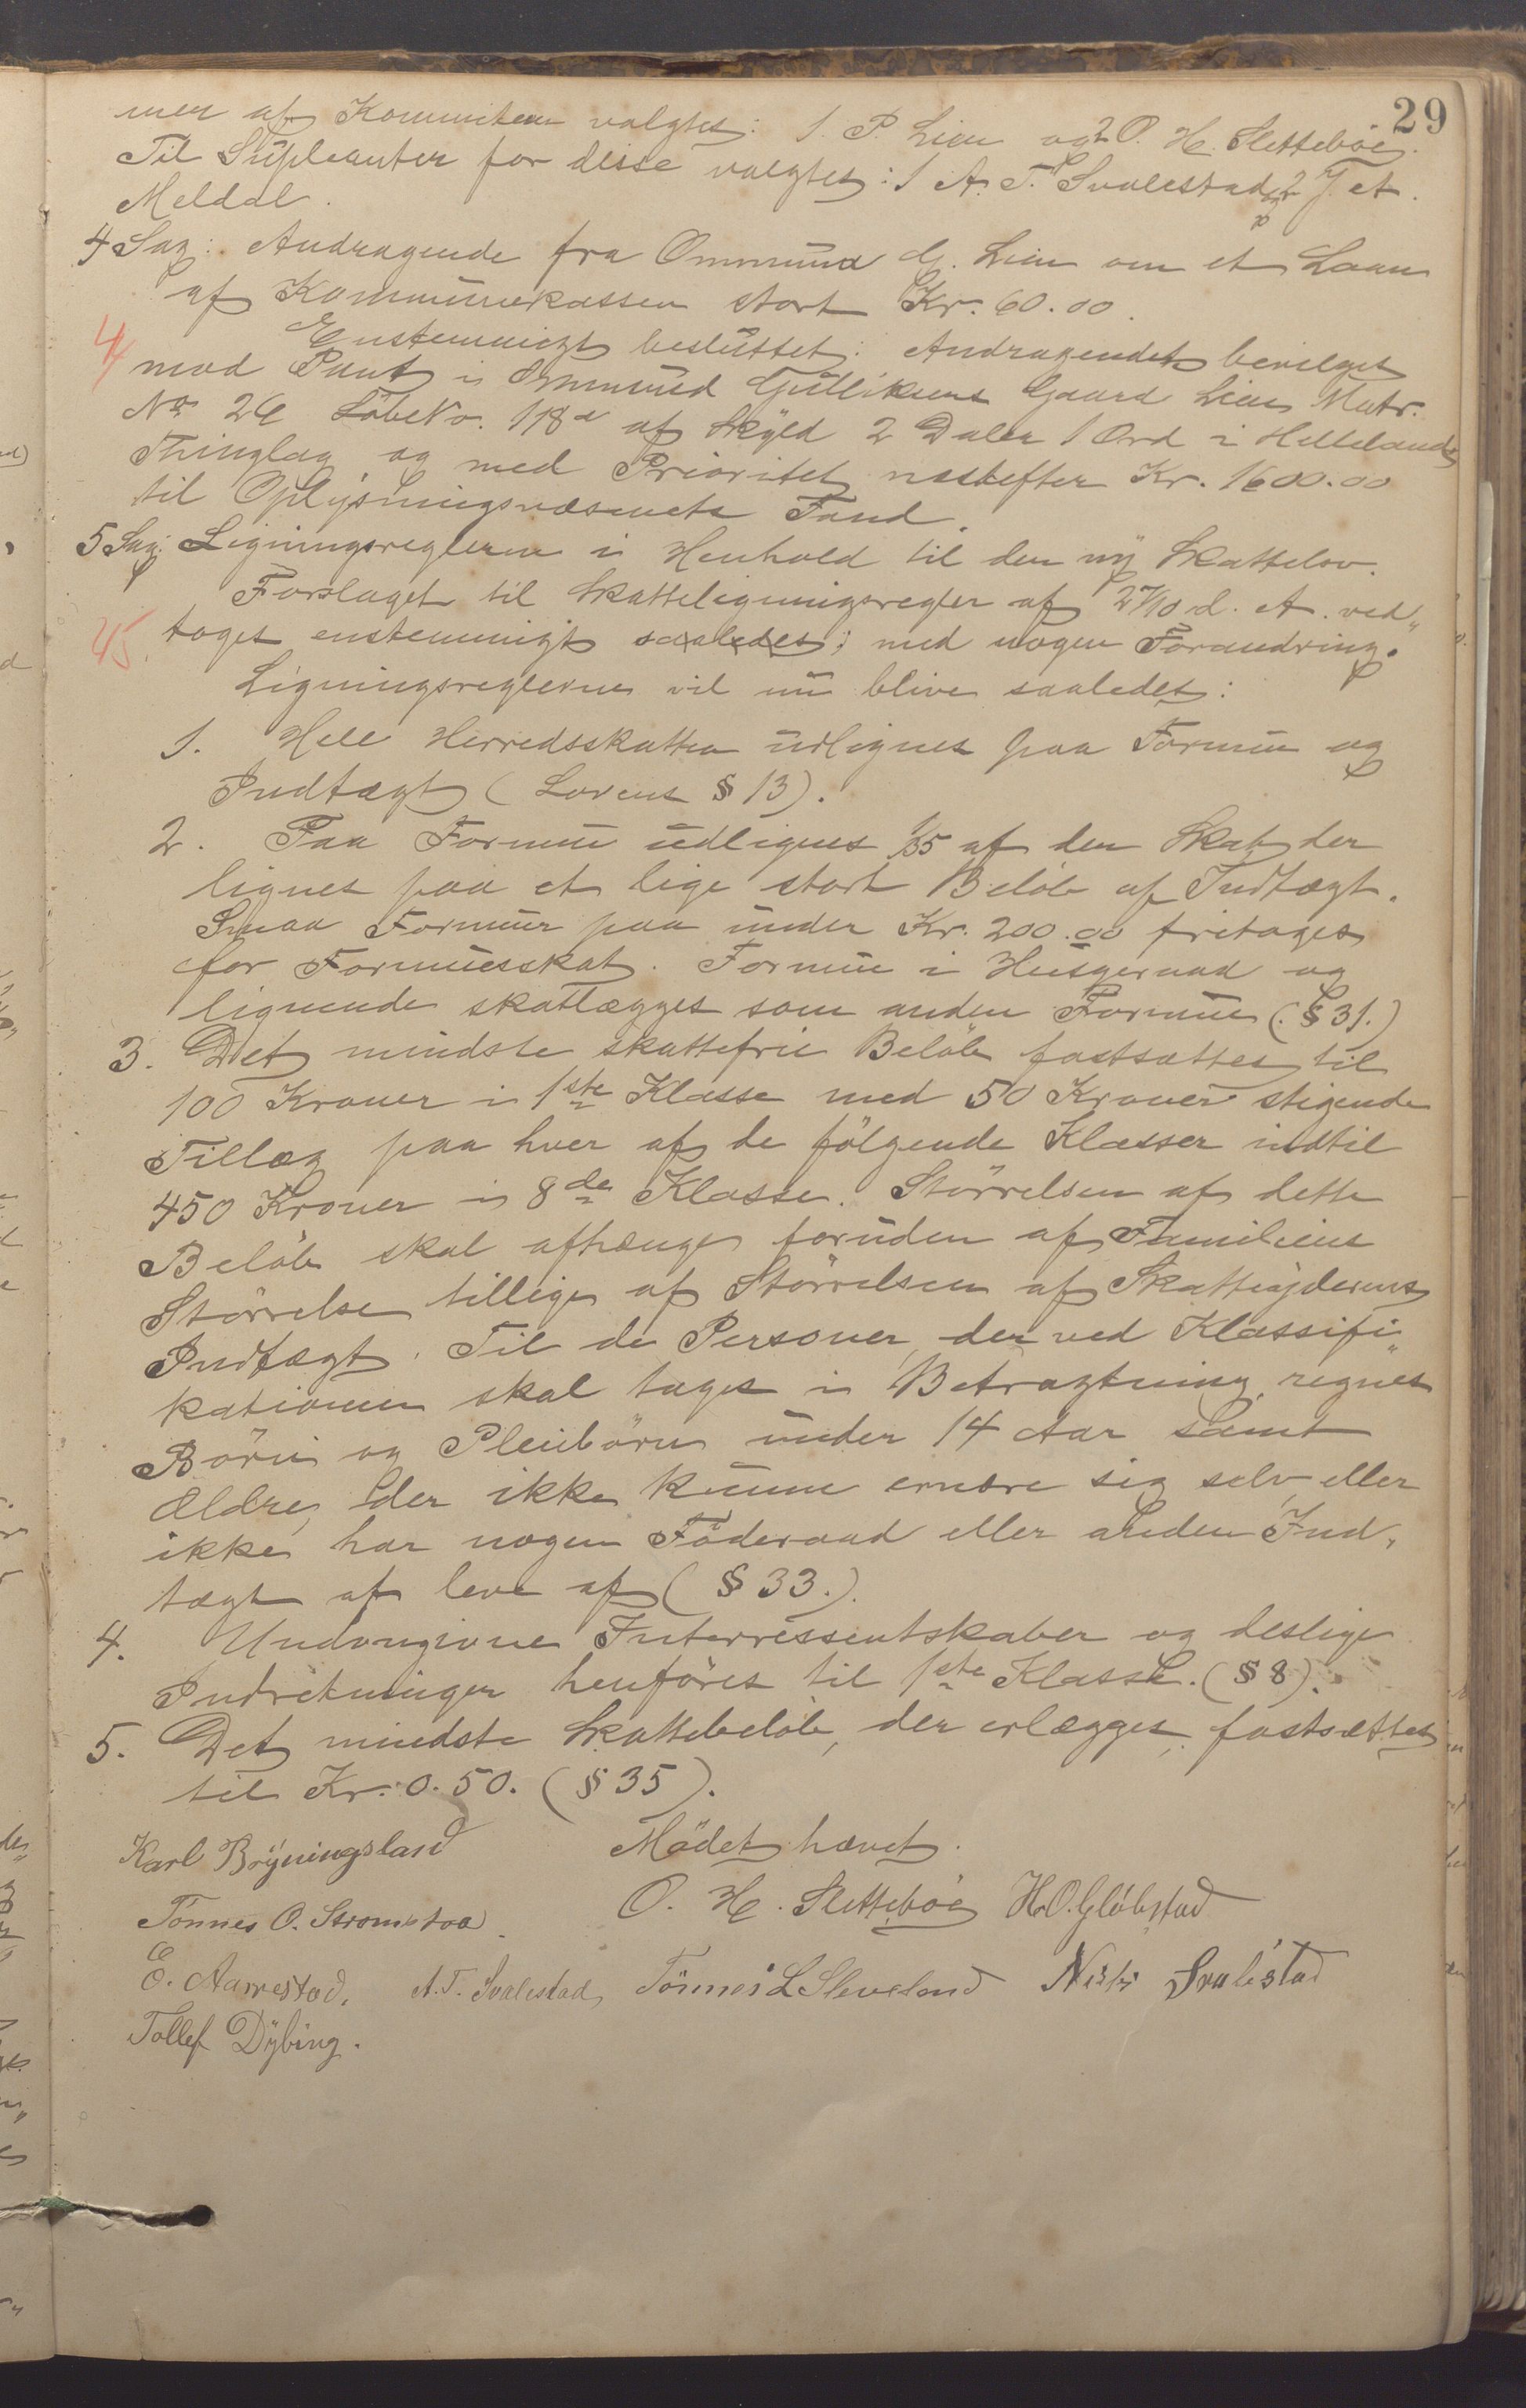 29
mer af Kommiteen valgtes: 1. P. Lien og 2 O. H. Slettebøe.
Til Supleanter for disse valgtes: 1 A. T. Svalestad, 2 T. A.
Meldal.
4 Sag: Andragende fra Ommund G. Lien om et Laan
af Kommunekassen stort Kr. 60.00.
44 Enstemmigt besluttet: Andragendet bevilget
mod Pant i Ommund Gulliksens Gaard Lien Matr.
No 26 LøbeNo. 118a af Skyld 2 Daler 1 Ord i Hellelands
Thinglag og med Prioritet næstefter Kr. 1600.00
til Oplysningsvæsenets Fond.
5 Sag: Ligningsreglerne i Henhold til den ny Skattelov.
Forslaget til Skatteligningsregler af 27/10 d. A. ved„
45 toges enstemmigt saaledes; med nogen Forandring.
Ligningsreglerne vil nu blive saaledes:
1. Hele Herredsskatten udlignes paa Formue og
Indtægt (Lovens § 13).
2. Paa Formue udlignes 1/35 af den Skat, der
lignes paa et lige stort Beløb af Indtægt.
Smaa Formuer paa under Kr. 200.00 fritages
for Formuesskat. Formue i Husgeraad og
lignende skatlægges som anden Formue (§ 31.)
3. Det mindste skattefrie Beløb fastsættes til
100 Kroner i 1ste Klasse med 50 Kroner stigende
Tillæg paa hver af de følgende Klasser indtil
450 Kroner i 8de Klasse. Størrelsen af dette
Beløb skal afhænge foruden af Familiens
Størrelse tillige af Størrelsen af Skatteyderens
Indtægt. Til de Personer, der ved Klassifi„
kationen skal tages i Betragtning, regnes
Børn og Pleiebørn under 14 Aar samt
Ældre, der ikke kunne ernære sig selv eller
ikke har nogen Føderaad eller anden Ind„
tægt at leve af (§ 33.).
4. Interressentskaber og deslige
Indretninger henføres til 1ste Klasse. (§ 8).
5. Det mindste Skattebeløb, der erlægges, fastsættes
til Kr. 0.50. (§ 35).
Mødet hævet.
Karl Bryningsland
O. H. Slettebøe H. O. Gløbstad
Tønnes O. Strømstad
E. Aarrestad. A. T. Svalestad, Tönnes L Sleveland Nils Svalestad
Tollef Dybing.